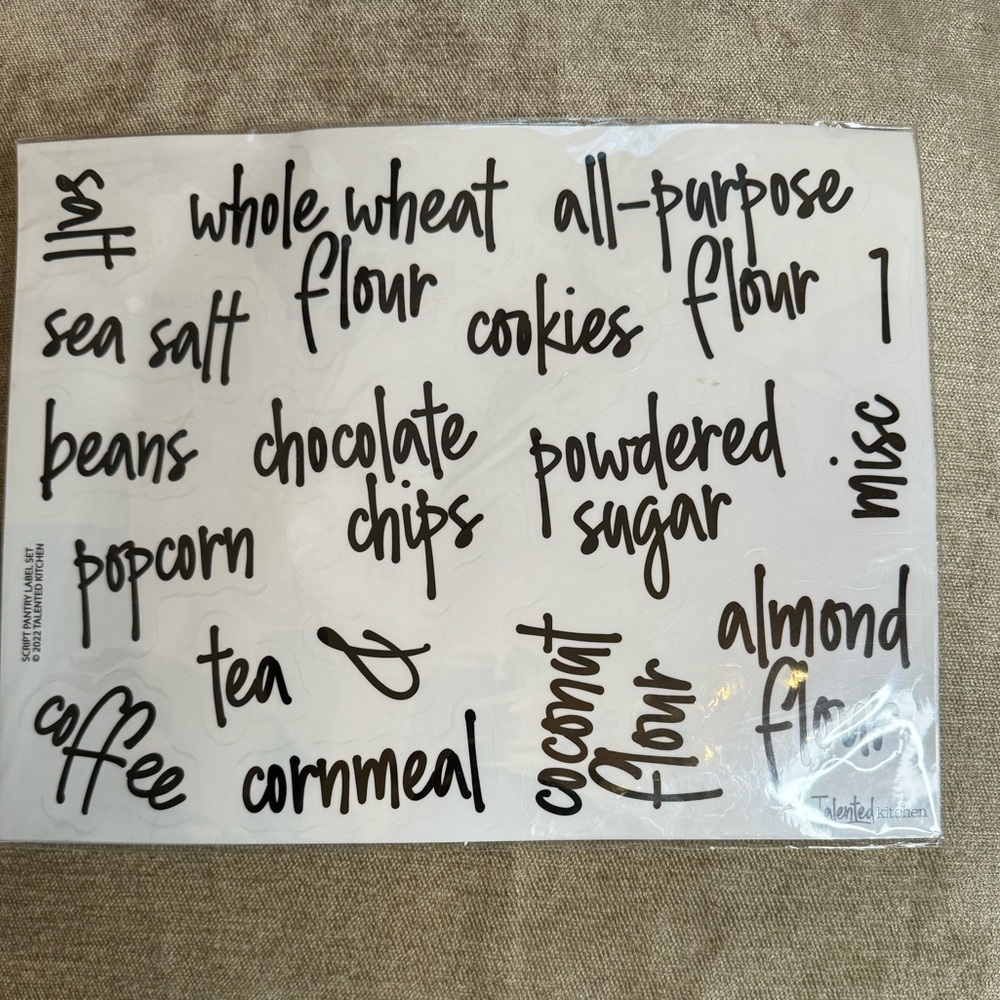 salt
whole wheat
flour
all-purpose
flour
1
sea salt
cookies
beans
chocolate
chips
powdered
sugar
misc
popcorn
SCRIPT PANTRY LABEL SET
© 2022 TALENTED KITCHEN
tea
&
coconut
flour
almond
flour
coffee
cornmeal
Talented kitchen